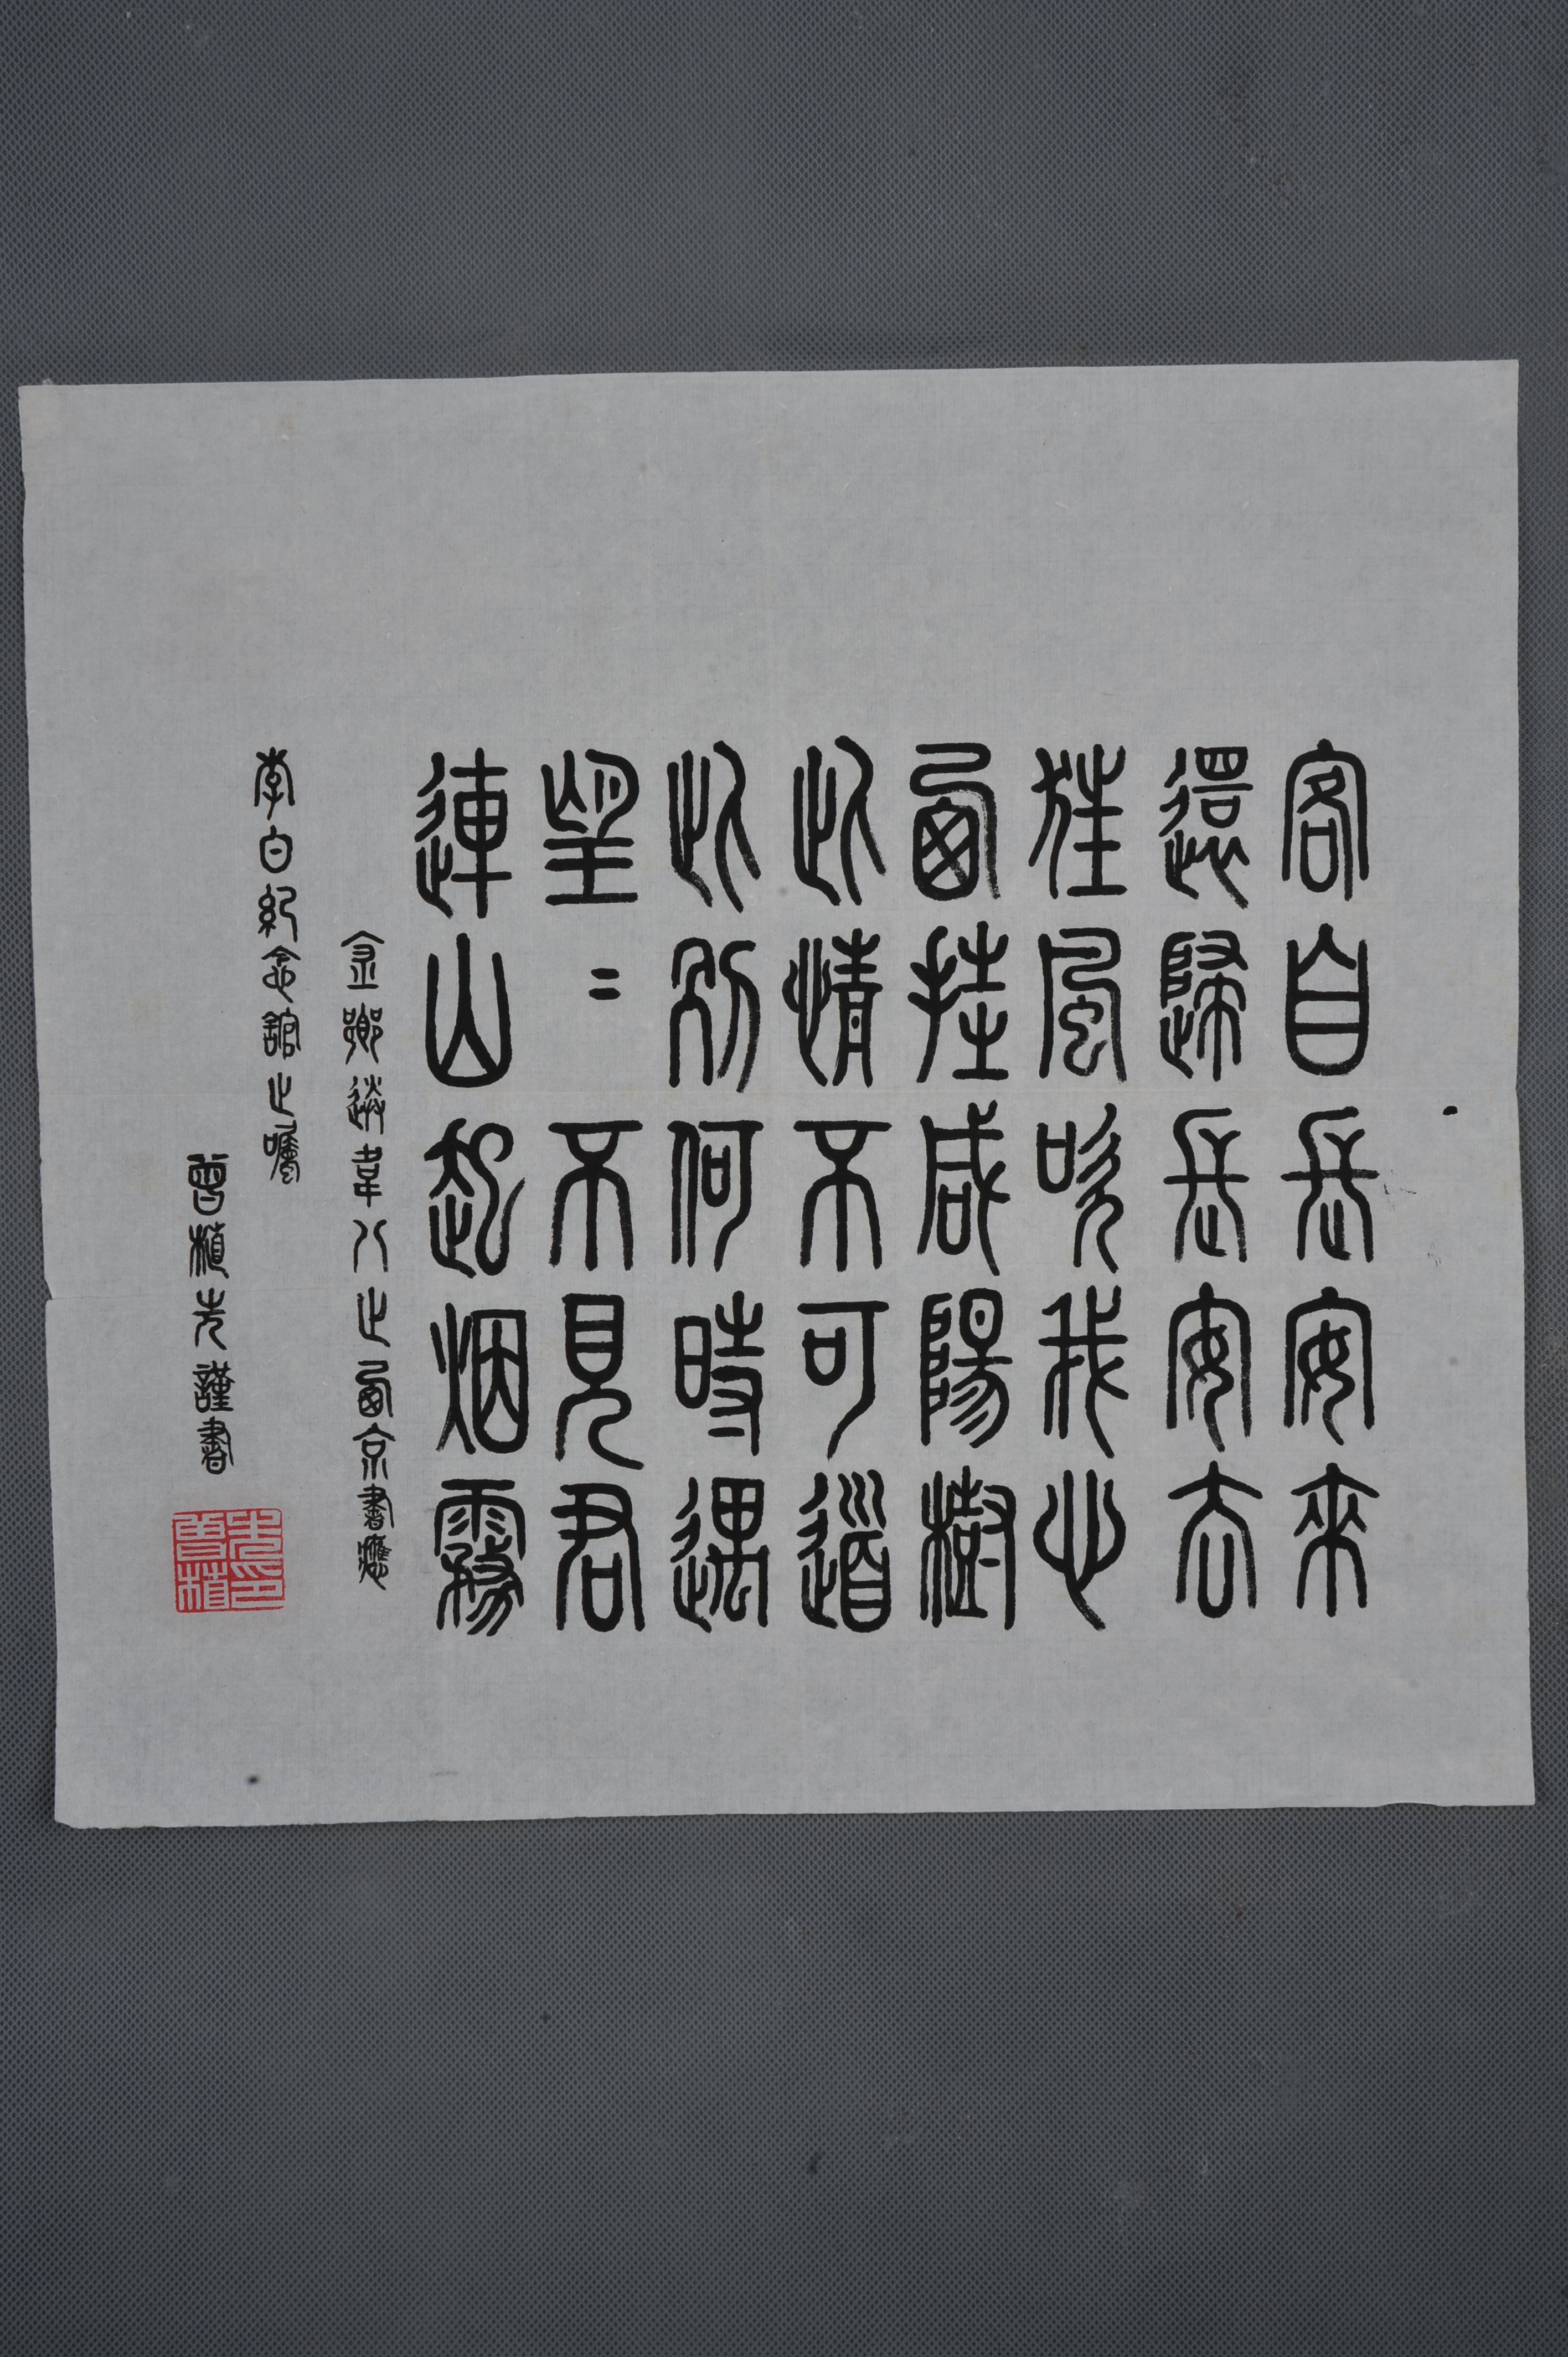 客自長安來
還歸長安去
狂風吹我心
西挂咸陽樹
此情不可道
此別何時遇
望〻不見君
連山起烟霧
金鄉送韋八之西京書應
李白紀念館之囑
曾植先謹書
曾植先印